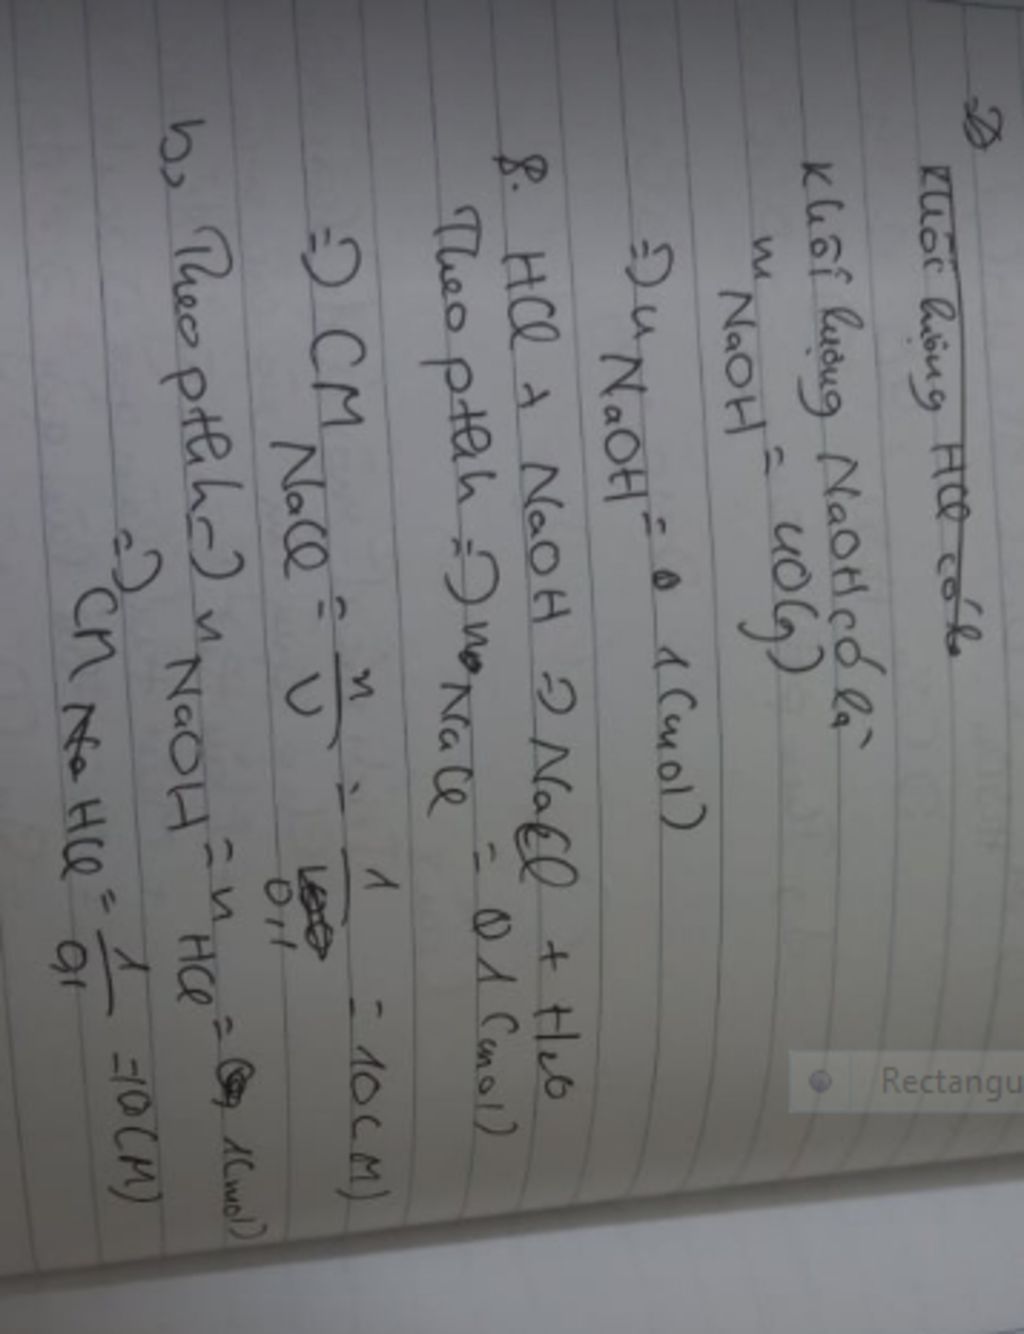 Khối lượng HCl có là
Khối lượng NaOH có là
m NaOH = 40(g)
=> n NaOH = 1 (mol)
HCl + NaOH => NaCl + H2O
Theo pthh => n NaCl = 1 (mol)
=> CM NaCl = n/V = 1/0,1 = 10(M)
b, Theo pthh => n NaOH = n HCl = 1(mol)
=> CM HCl = 1/0,1 = 10(M)
Rectangu